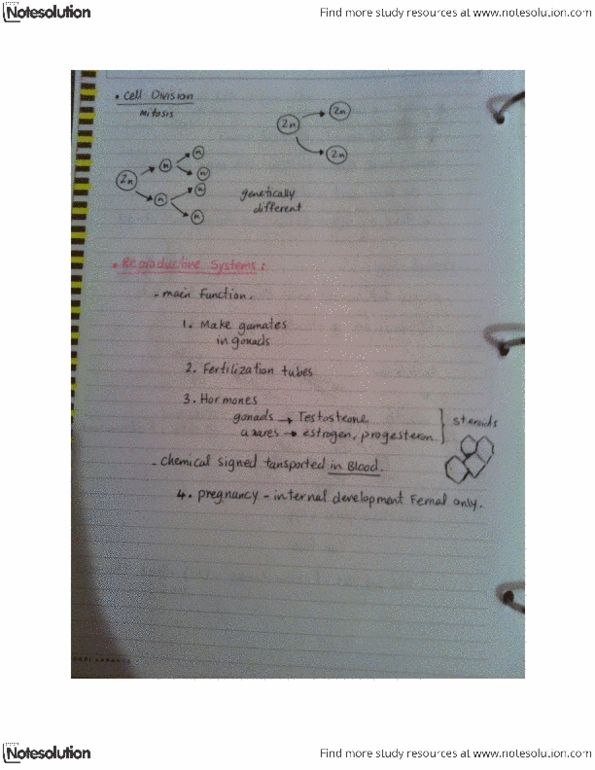 Notesolution
Find more study resources at www.notesolution.com
• Cell Division
Mitosis
2n
2n
2n
2n
n
n
n
n
n
n
genetically
different
• Reproductive Systems:
- main Function.
1. Make gamates
in gonads
2. Fertilization tubes
3. Hormones
gonads → Testosteone
→ estrogen, progesteron
steroids
- chemical signed tansported in Blood.
4. pregnancy - internal development Femal only.
Notesolution
Find more study resources at www.notesolution.com